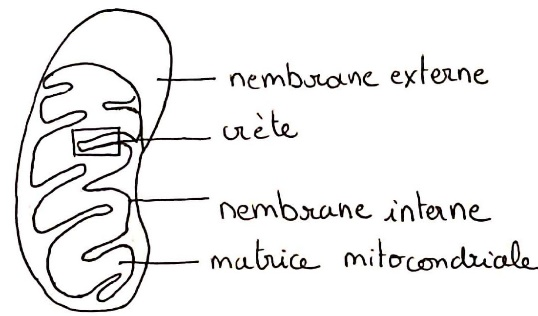 nembrane externe
crète
nembrane interne
matrice mitocondriale